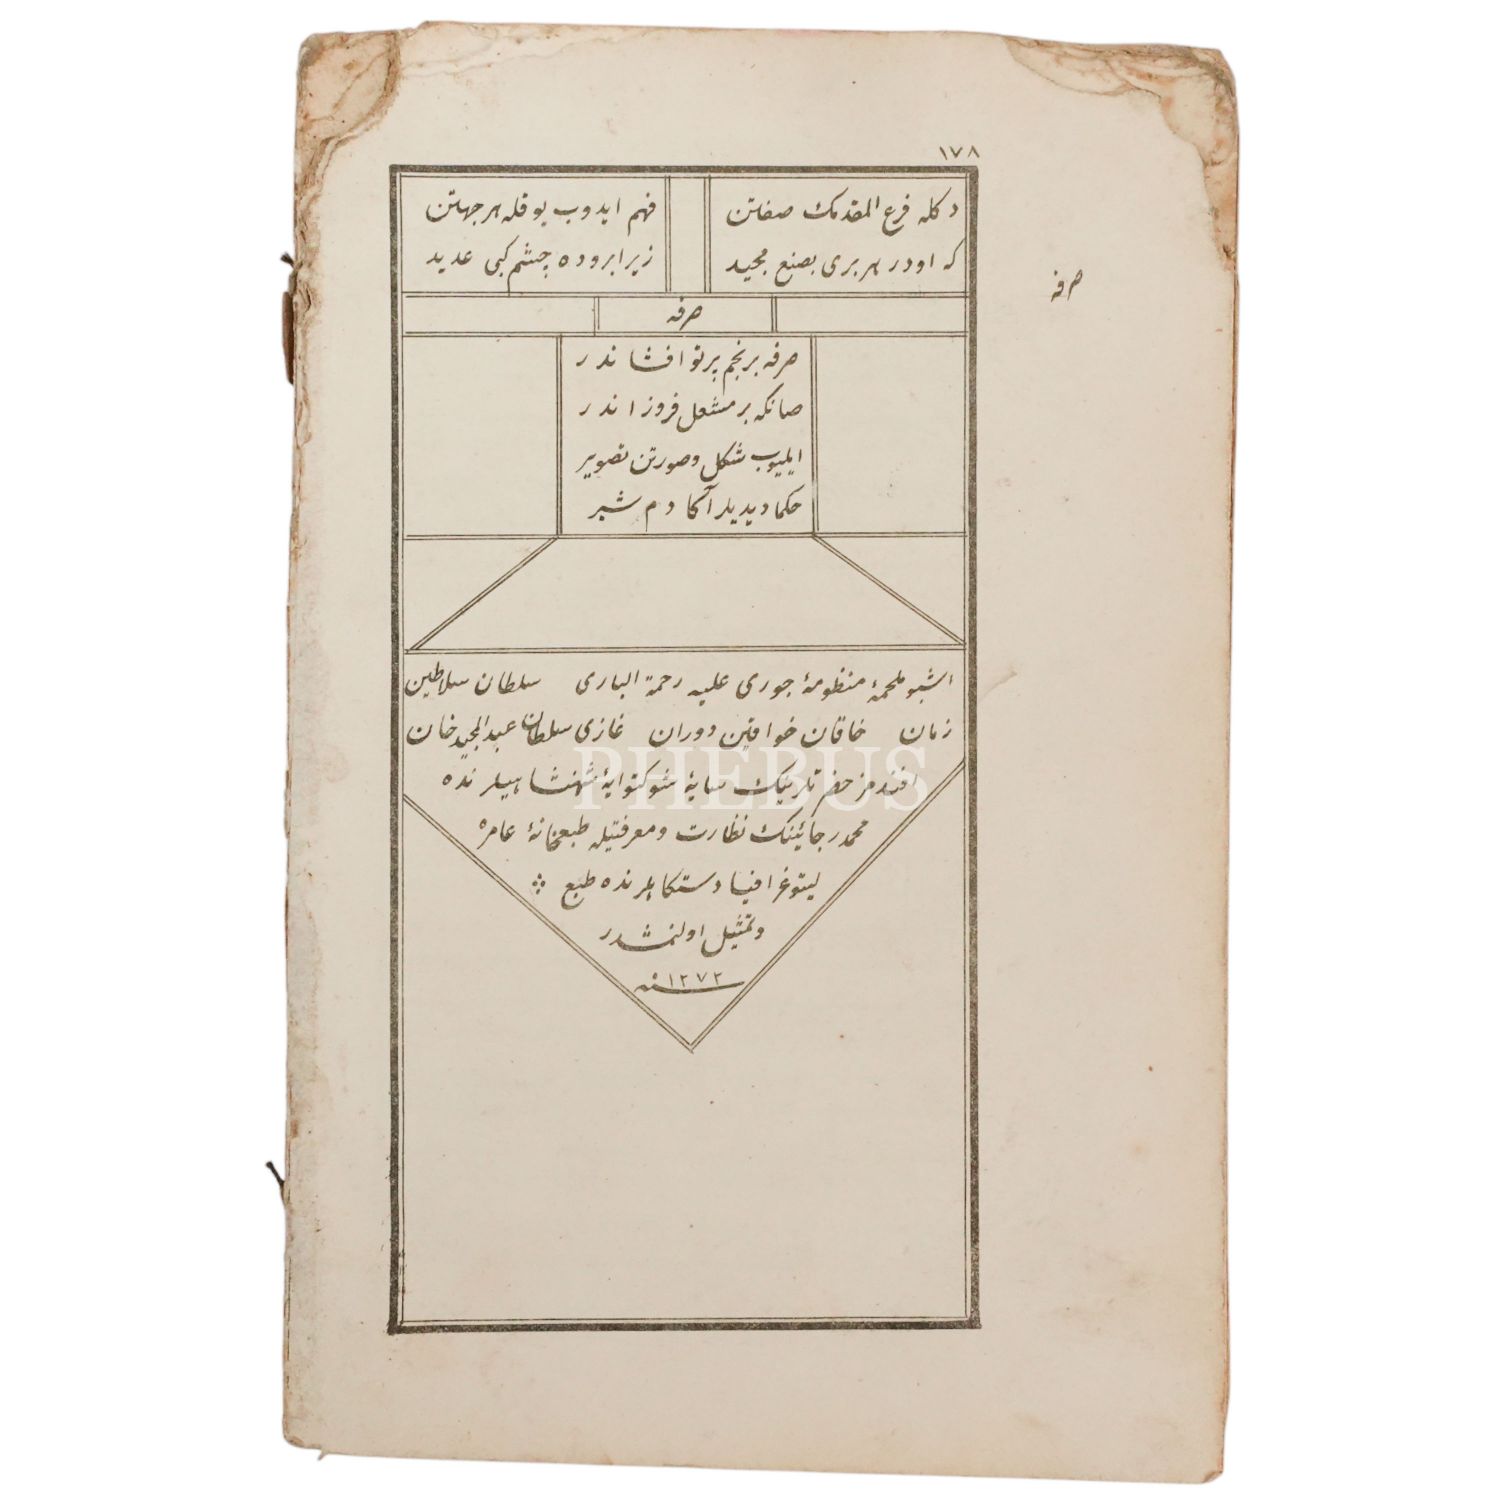 ١٧٨
دكله فرع المقدمك صفتن فهم ايدوب بوقله هر جهتن
كه اودر هر بری بصنع مجيد زير ابروده چشم كبی عديد
صرفه
صرفه
صرفه بر نجم پرتو افشاندر
صانكه بر مشعل فروزاندر
ايليوب شكل وصورتن تصوير
حكما ديديلر آكا دم شير
اشبو ملحمۀ منظومۀ جوری عليه رحمة الباری سلطان سلاطين
زمان خاقان خواقين دوران غازی سلطان عبد المجيد خان
افندمز حضرتلرينك سايۀ شوكتوايۀ شهنشاهيلرنده
محمد رجائينك نظارت ومعرفتيله طبعخانۀ عامره
ليتوغرافيا دستكاهلرنده طبع
وتمثيل اولنمشدر
سنه ١٢٧٢
PHEBUS